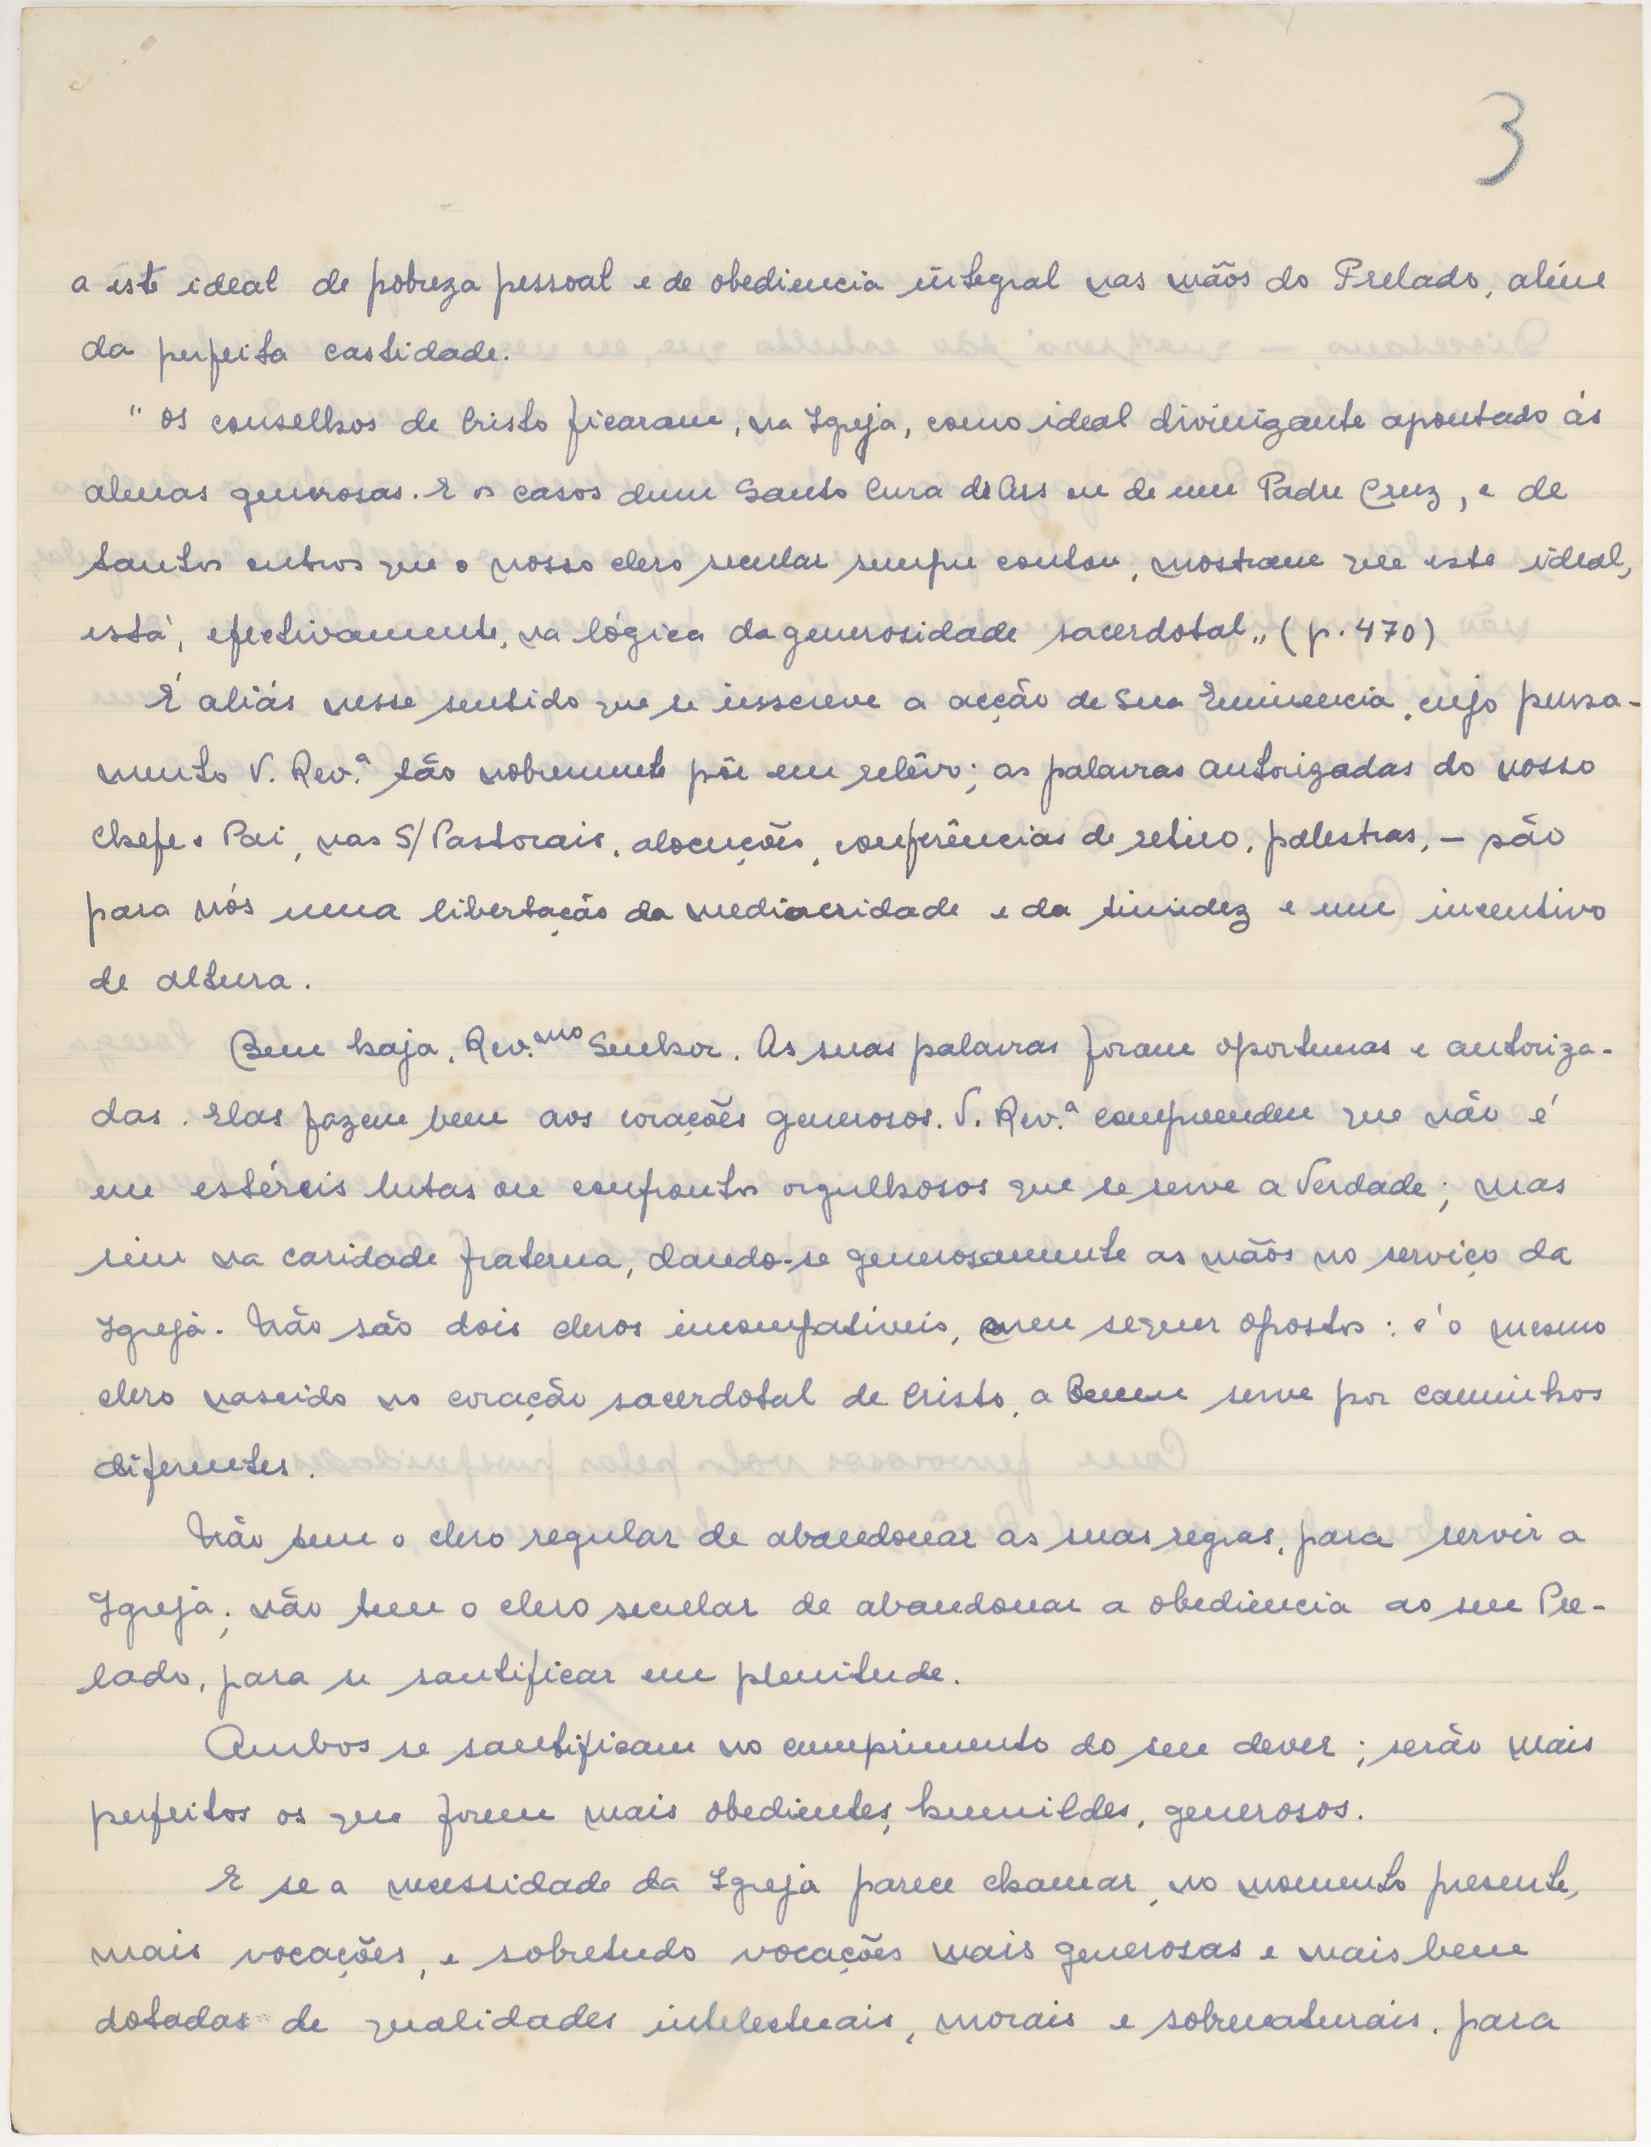 3
a este ideal de pobreza pessoal e de obediencia integral nas mãos do Prelado, além
da perfeita castidade.
" Os conselhos de Cristo ficaram, na Igreja, como ideal divinizante apontado ás
almas generosas. E os casos dum Santo Cura de Ars ou de um Padre Cruz, e de
tantos outros que o nosso clero secular sempre contou, mostram que este ideal,
está, efectivamente, na lógica da generosidade sacerdotal„ (p. 470)
É aliás nesse sentido que se insscreve a acção de Sua Eminencia, cujo pensa-
mento V. Rev.ª tão nobremente põe em relêvo; as palavras autorizadas do nosso
Chefe e Pai, nas S/ Pastorais, alocuções, conferências de retiro, palestras, - são
para nós uma libertação da mediocridade e da timidez e um incentivo
de altura.
Bem haja, Rev.mo Senhor. As suas palavras foram oportunas e autoriza-
das. Elas fazem bem aos corações generosos. V. Rev.ª compreendeu que não é
em estéreis lutas ou confrontos orgulhosos que se serve a Verdade; mas
sim na caridade fraterna, dando-se generosamente as mãos no serviço da
Igreja. Não são dois cleros incompativeis, nem sequer opostos: é o mesmo
clero nascido no coração sacerdotal de Cristo, a Quem serve por caminhos
diferentes.
Não tem o clero regular de abandonar as suas regras, para servir a
Igreja; não tem o clero secular de abandonar a obediencia ao seu Pre-
lado, para se santificar em plenitude.
Ambos se santificam no cumprimento do seu dever; serão mais
perfeitos os que forem mais obedientes, humildes, generosos.
E se a necessidade da Igreja parece chamar, no momento presente,
mais vocações, e sobretudo vocações mais generosas e mais bem
dotadas de qualidades intelectuais, morais e sobrenaturais, para